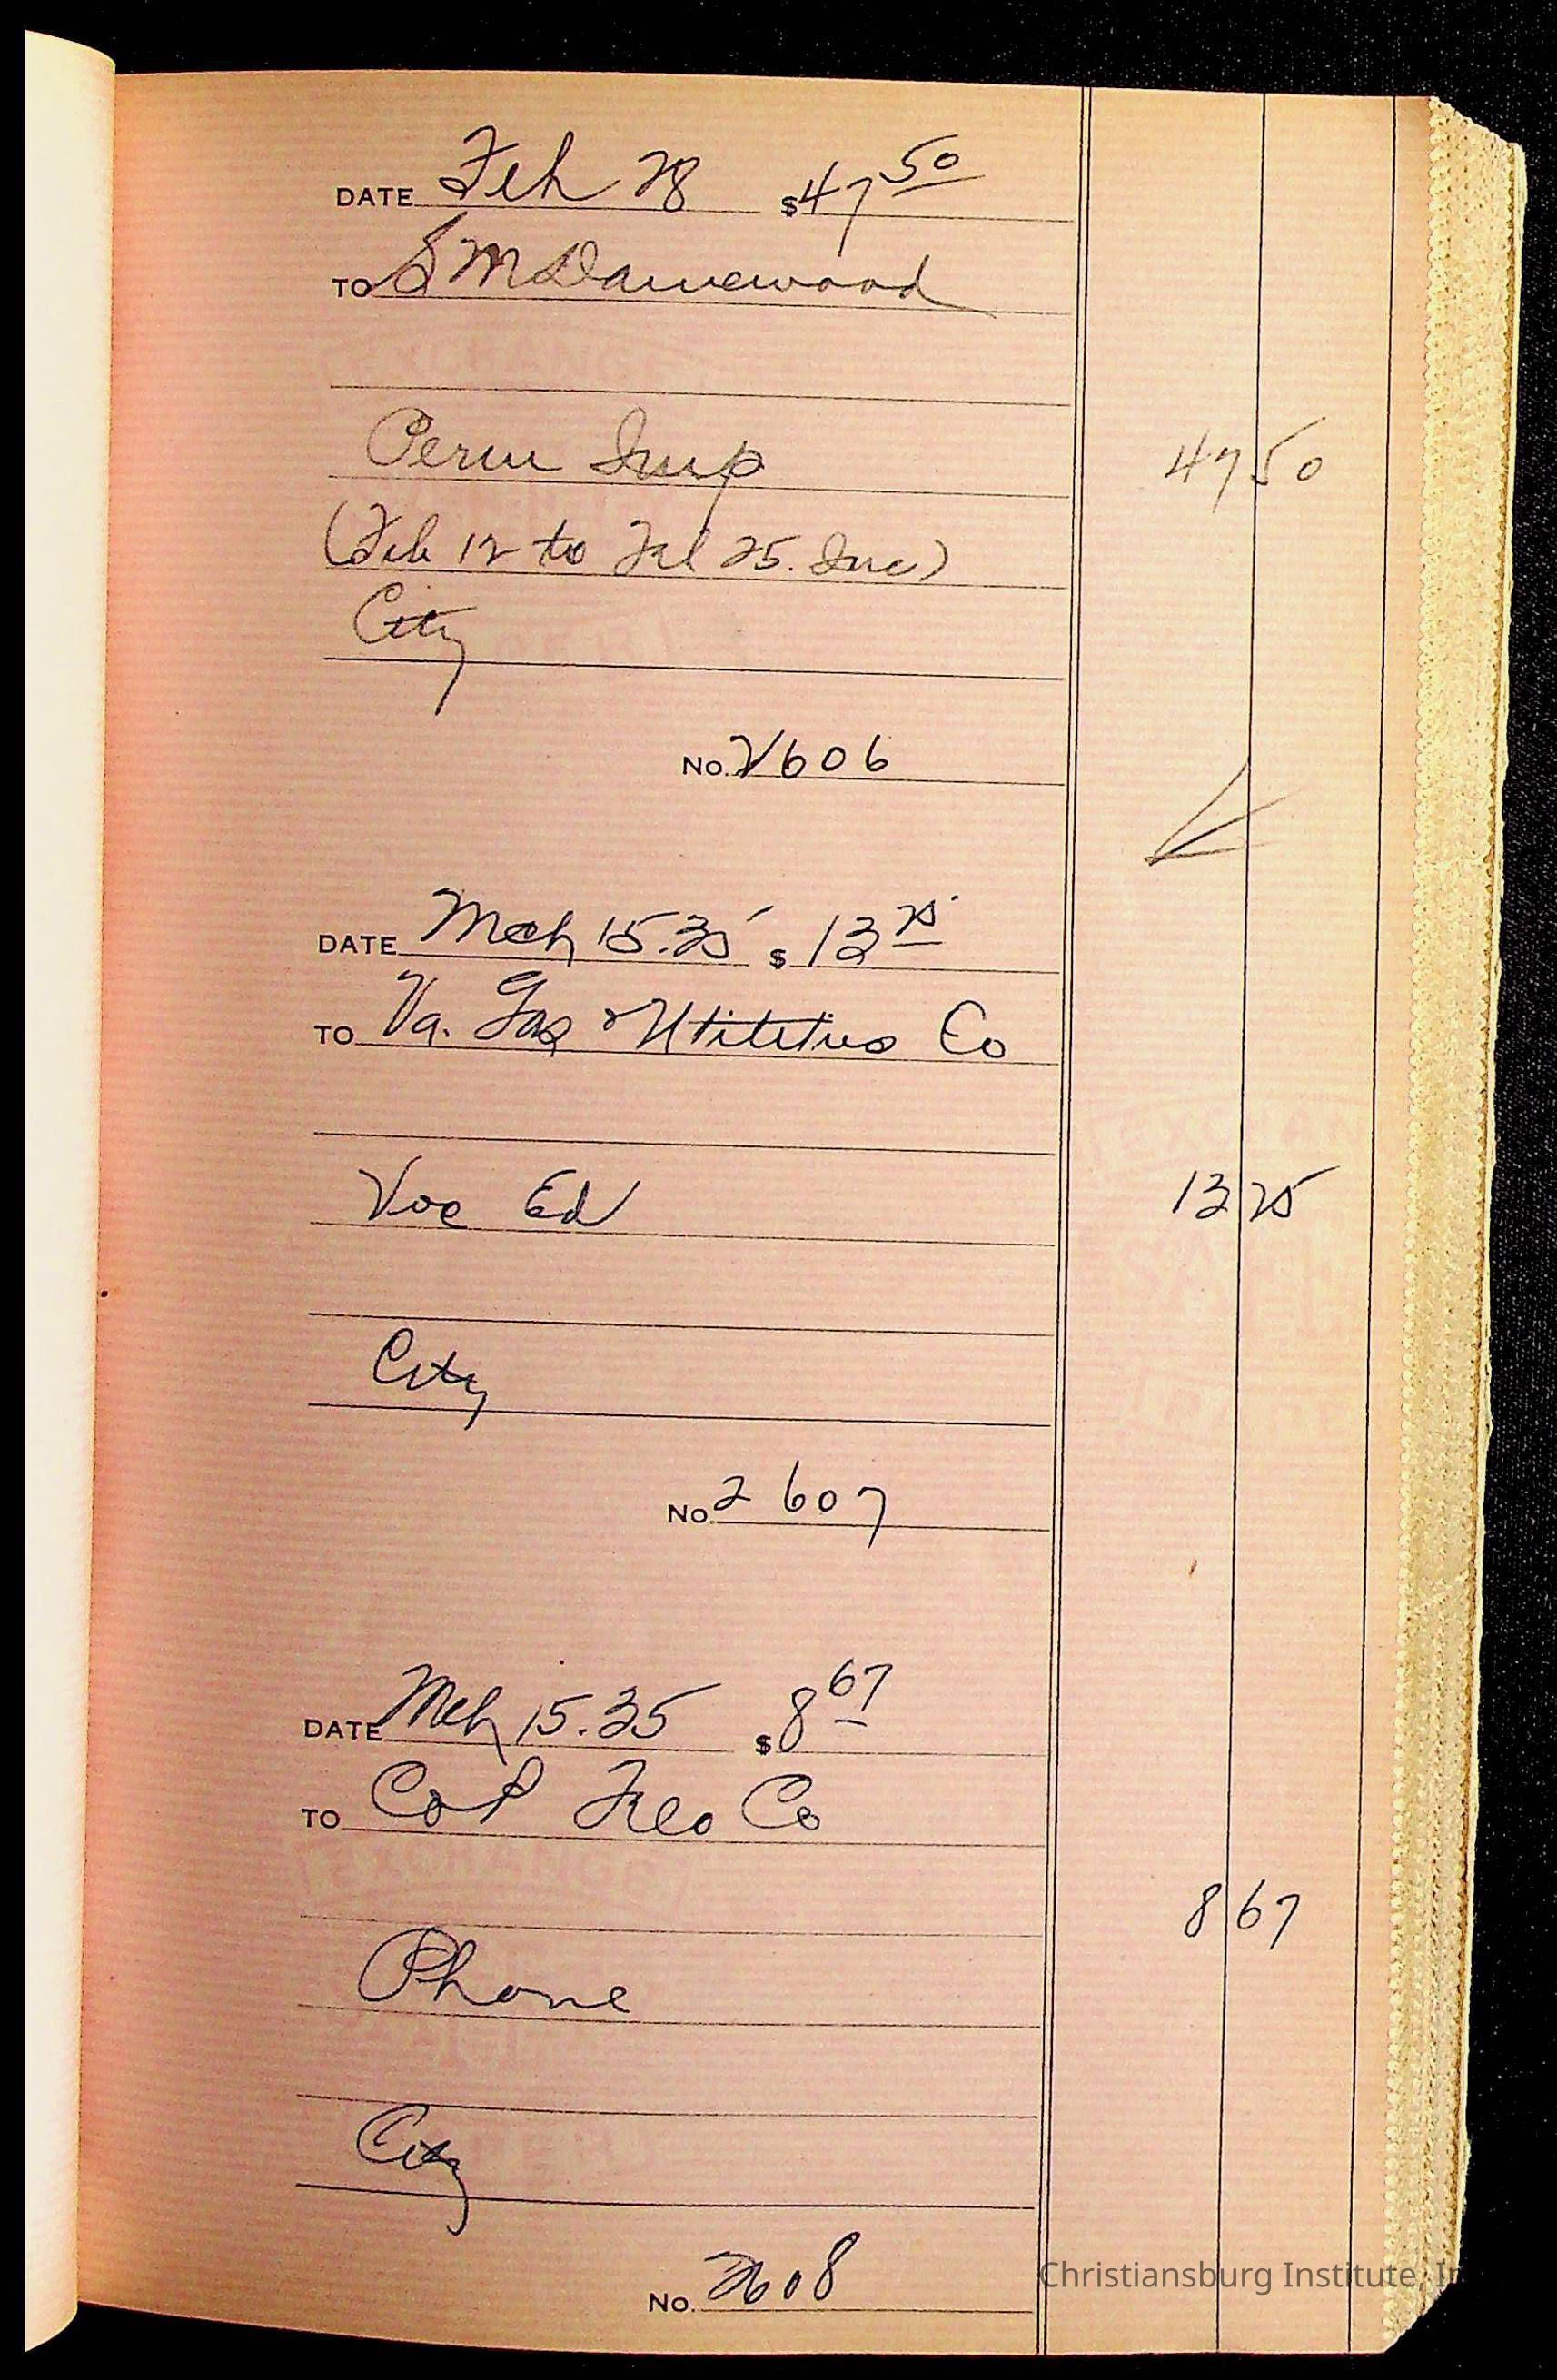 DATE Feb 28 $47 50
TO S M Dannewood
Perm Imp 47 50
(Feb 12 to Feb 25. Inc)
City
No. 2606
DATE Mch 15.35 $13 25
TO Va. Gas & Utilities Co
Voc Ed 13 25
City
No. 2607
DATE Mch 15.35 $8 67
TO C & P Co
8 67
Phone
City
No. 2608
Christiansburg Institute, In